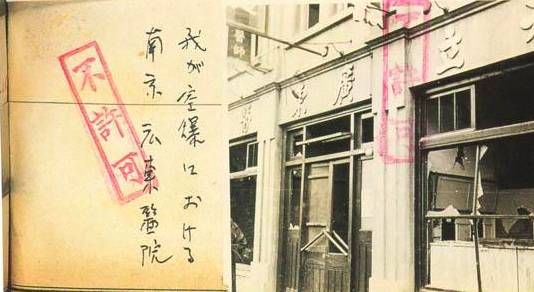 我が空爆における
南京広東醫院
不許可
不許可
廣東